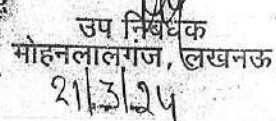 उप निबंधक
मोहनलालगंज, लखनऊ
21/3/24